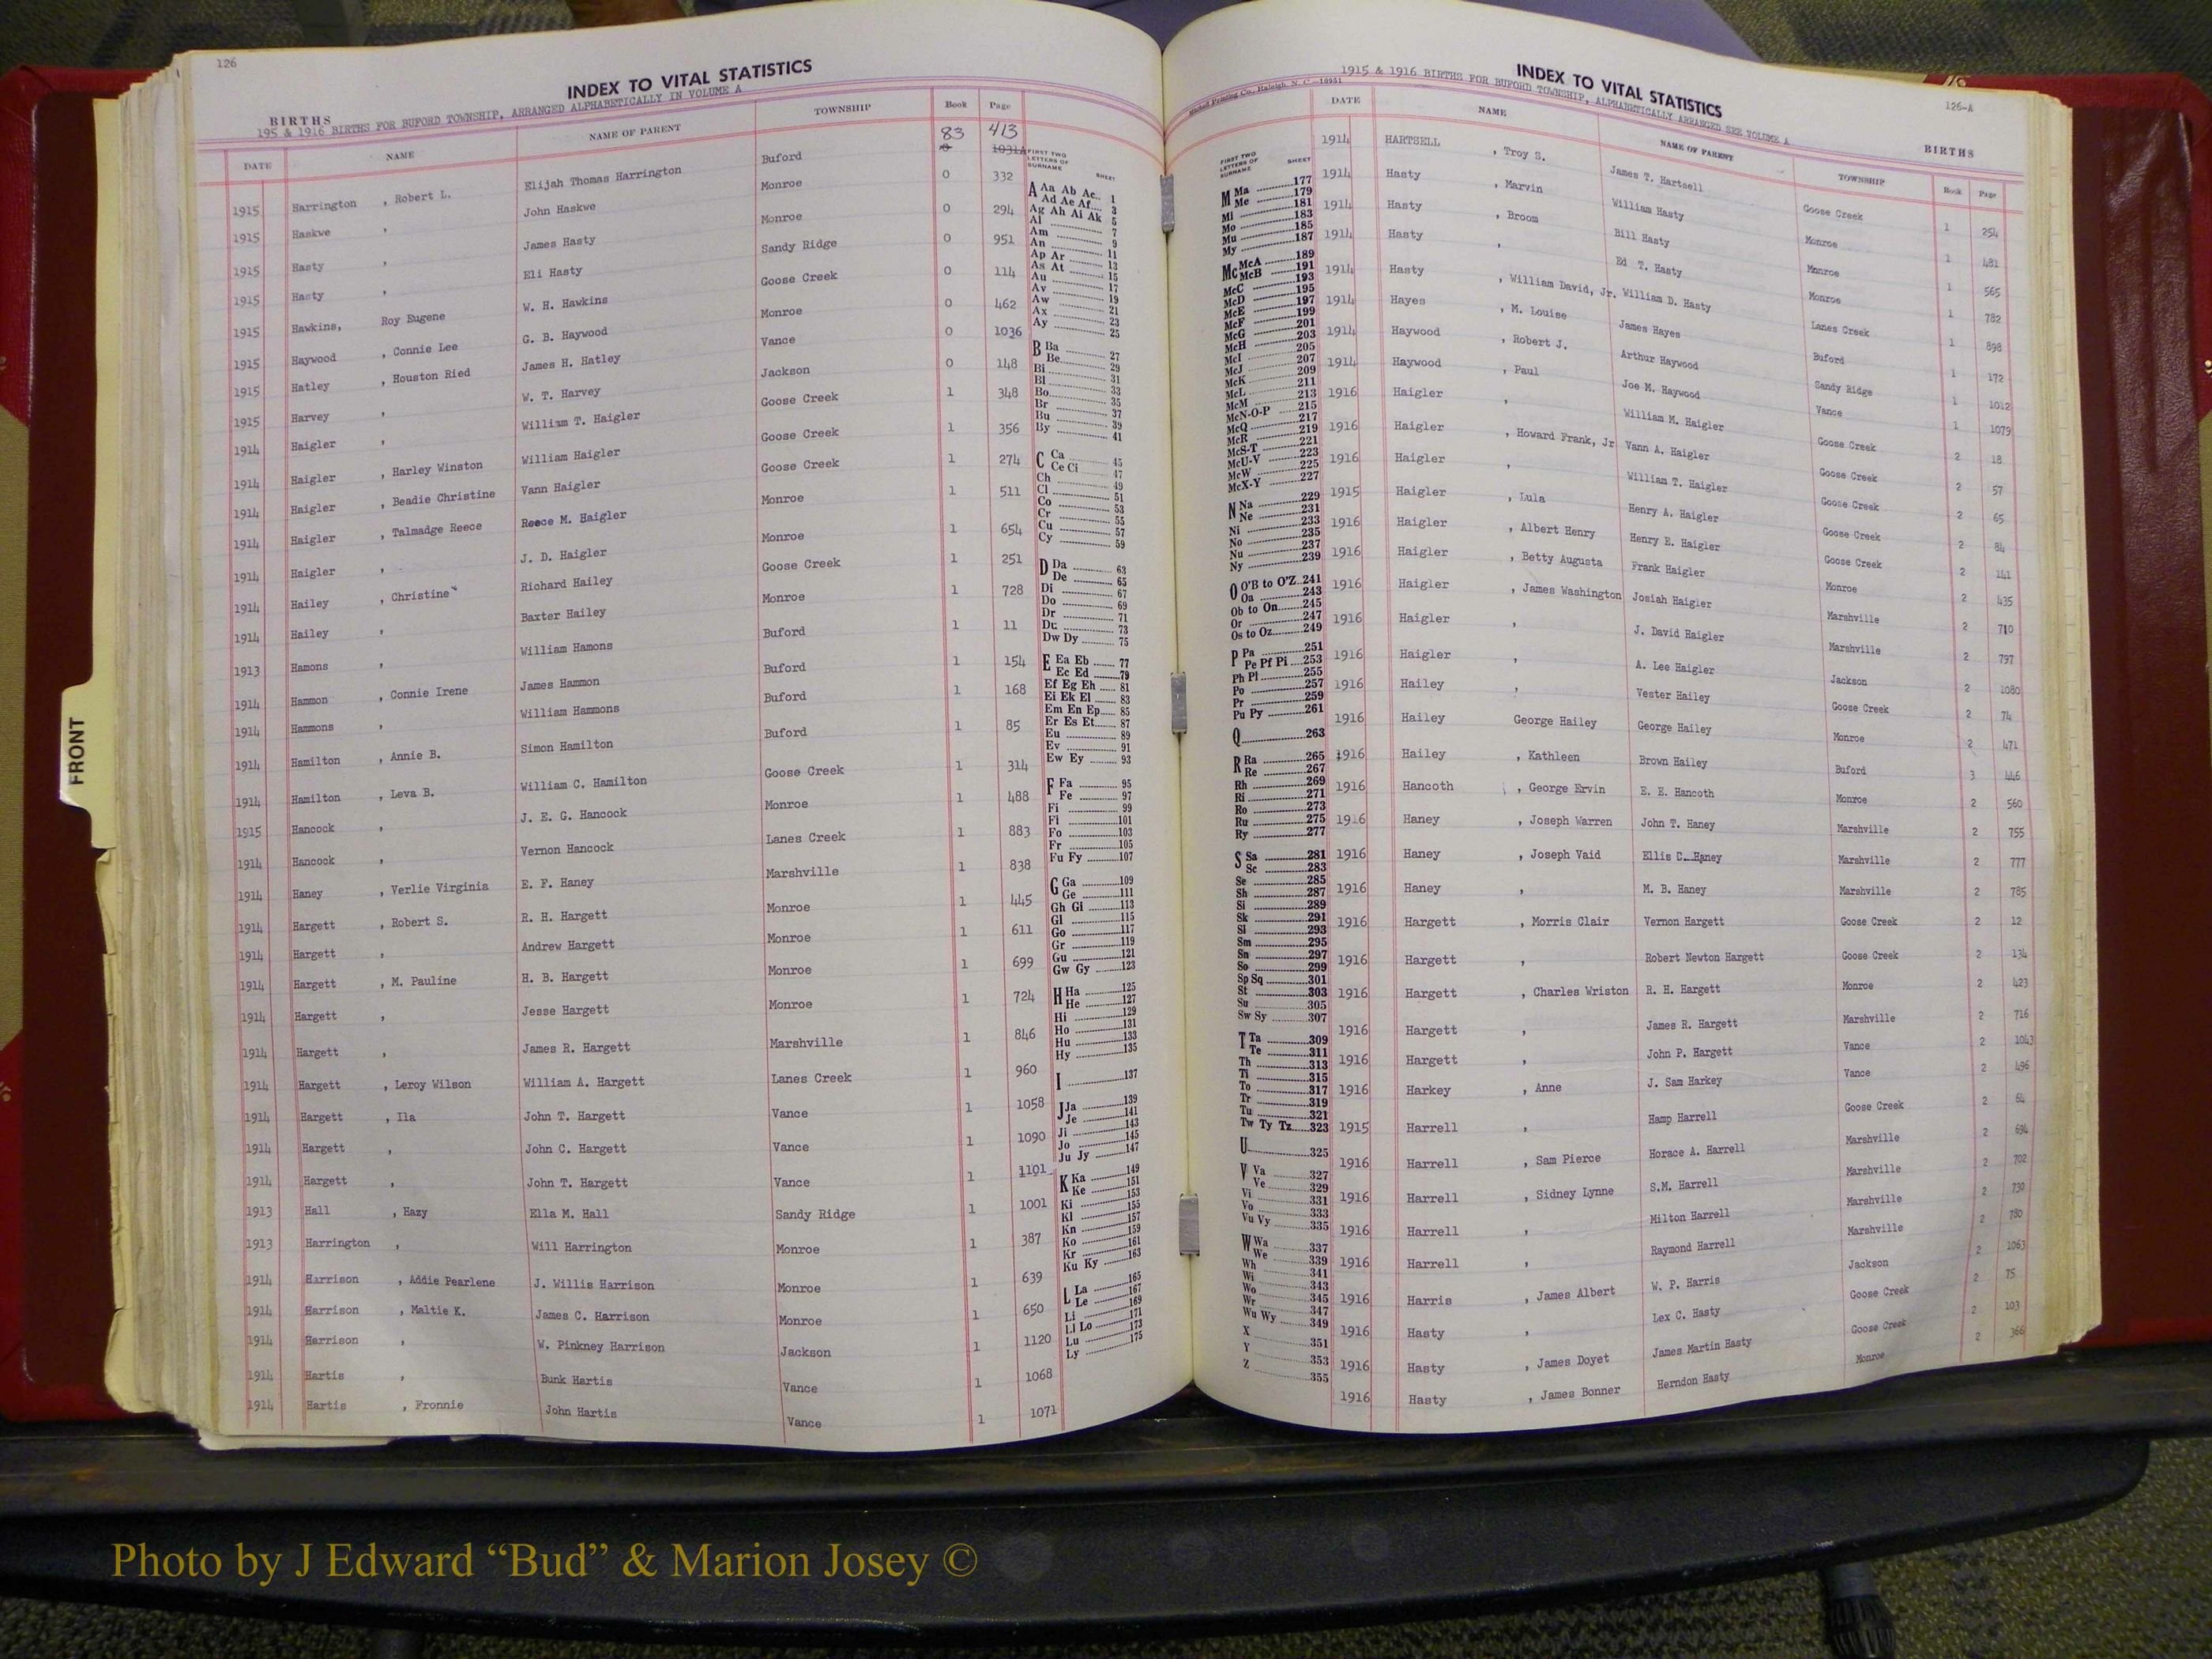 126
INDEX TO VITAL STATISTICS
BIRTHS
195 & 1916 BIRTHS FOR BUFORD TOWNSHIP, ARRANGED ALPHABETICALLY IN VOLUME A
DATE NAME NAME OF PARENT TOWNSHIP Book Page
1915 Harrington , Robert L. Elijah Thomas Harrington Buford 83 413 0 1031A
1915 Haskwe , John Haskwe Monroe 0 332
1915 Hasty , James Hasty Monroe 0 294
1915 Hasty , Eli Hasty Sandy Ridge 0 951
1915 Hawkins, Roy Eugene W. H. Hawkins Goose Creek 0 114
1915 Haywood , Connie Lee G. B. Haywood Monroe 0 462
1915 Hatley , Houston Ried James H. Hatley Vance 0 1036
1915 Harvey , W. T. Harvey Jackson 0 148
1914 Haigler , William T. Haigler Goose Creek 1 348
1914 Haigler , Harley Winston William Haigler Goose Creek 1 356
1914 Haigler , Beadie Christine Vann Haigler Goose Creek 1 274
1914 Haigler , Talmadge Reece Reece M. Haigler Monroe 1 511
1914 Haigler , J. D. Haigler Monroe 1 654
1914 Hailey , Christine Richard Hailey Goose Creek 1 251
1914 Hailey , Baxter Hailey Monroe 1 728
1913 Hamons , William Hamons Buford 1 11
1914 Hammon , Connie Irene James Hammon Buford 1 154
1914 Hammons , William Hammons Buford 1 168
1914 Hamilton , Annie B. Simon Hamilton Buford 1 85
1914 Hamilton , Leva B. William C. Hamilton Goose Creek 1 314
1915 Hancock , J. E. G. Hancock Monroe 1 488
1914 Hancock , Vernon Hancock Lanes Creek 1 883
1914 Haney , Verlie Virginia E. F. Haney Marshville 1 838
1914 Hargett , Robert S. R. H. Hargett Monroe 1 445
1914 Hargett , Andrew Hargett Monroe 1 611
1914 Hargett , M. Pauline H. B. Hargett Monroe 1 699
1914 Hargett , Jesse Hargett Monroe 1 724
1914 Hargett , James R. Hargett Marshville 1 846
1914 Hargett , Leroy Wilson William A. Hargett Lanes Creek 1 960
1914 Hargett , Ila John T. Hargett Vance 1 1058
1914 Hargett , John C. Hargett Vance 1 1090
1914 Hargett , John T. Hargett Vance 1
1913 Hall , Hazy Ella M. Hall Sandy Ridge 1 1001
1913 Harrington , Will Harrington Monroe 1 387
1914 Harrison , Addie Pearlene J. Willis Harrison Monroe 1 639
1914 Harrison , Maltie K. James C. Harrison Monroe 1 650
1914 Harrison , W. Pinkney Harrison Jackson 1 1120
1914 Hartis , Bunk Hartis Vance 1 1068
1914 Hartis , Fronnie John Hartis Vance 1 1071
FIRST TWO LETTERS OF SURNAME SHEET
A Aa Ab Ac 1
Ad Ae Af 3
Ag Ah Ai Ak 5
Al 7
Am 9
An 11
Ap Ar 13
As At 15
Au 17
Av 19
Aw 21
Ax 23
Ay 25
B Ba 27
Be 29
Bi 31
Bl 33
Bo 35
Br 37
Bu 39
By 41
C Ca 45
Ce Ci 47
Ch 49
Cl 51
Co 53
Cr 55
Cu 57
Cy 59
D Da 63
De 65
Di 67
Do 69
Dr 71
Du 73
Dw Dy 75
E Ea Eb 77
Ec Ed 79
Ef Eg Eh 81
Ei Ek El 83
Em En Ep 85
Er Es Et 87
Eu 89
Ev 91
Ew Ey 93
F Fa 95
Fe 97
Fi 99
Fl 101
Fo 103
Fr 105
Fu Fy 107
G Ga 109
Ge 111
Gh Gi 113
Gl 115
Go 117
Gr 119
Gu 121
Gw Gy 123
H Ha 125
He 127
Hi 129
Ho 131
Hu 133
Hy 135
I 137
J Ja 139
Je 141
Ji 143
Jo 145
Ju Jy 147
K Ka 149
Ke 151
Ki 153
Kl 155
Kn 157
Ko 159
Kr 161
Ku Ky 163
L La 165
Le 167
Li 169
Ll Lo 171
Lu 173
Ly 175
Printing Co., Raleigh, N. C.—10951
INDEX TO VITAL STATISTICS
1915 & 1916 BIRTHS FOR BUFORD TOWNSHIP, ALPHABETICALLY ARRANGED SEE VOLUME A
126-A
BIRTHS
FIRST TWO LETTERS OF SURNAME SHEET
M Ma 177
Me 179
Mi 181
Mo 183
Mu 185
My 187
Mc McA 189
McB 191
McC 193
McD 195
McE 197
McF 199
McG 201
McH 203
McI 205
McJ 207
McK 209
McL 211
McM 213
McN-O-P 215
McQ 217
McR 219
McS-T 221
McU-V 223
McW 225
McX-Y 227
N Na 229
Ne 231
Ni 233
No 235
Nu 237
Ny 239
O O'B to O'Z 241
Oa 243
Ob to On 245
Or 247
Os to Oz 249
P Pa 251
Pe Pf Pi 253
Ph Pl 255
Po 257
Pr 259
Pu Py 261
Q 263
R Ra 265
Re 267
Rh 269
Ri 271
Ro 273
Ru 275
Ry 277
S Sa 281
Sc 283
Se 285
Sh 287
Si 289
Sk 291
Sl 293
Sm 295
Sn 297
So 299
Sp Sq 301
St 303
Su 305
Sw Sy 307
T Ta 309
Te 311
Th 313
Ti 315
To 317
Tr 319
Tu 321
Tw Ty Tz 323
U 325
V Va 327
Ve 329
Vi 331
Vo 333
Vu Vy 335
W Wa 337
We 339
Wh 341
Wi 343
Wo 345
Wr 347
Wu Wy 349
X 351
Y 353
Z 355
DATE NAME NAME OF PARENT TOWNSHIP Book Page
1914 HARTSELL , Troy S. James T. Hartsell Goose Creek 1 254
1914 Hasty , Marvin William Hasty Monroe 1 481
1914 Hasty , Broom Bill Hasty Monroe 1 565
1914 Hasty , Ed T. Hasty Monroe 1 782
1914 Hasty , William David, Jr. William D. Hasty Lanes Creek 1 898
1914 Hayes , M. Louise James Hayes Buford 1 172
1914 Haywood , Robert J. Arthur Haywood Sandy Ridge 1 1012
1914 Haywood , Paul Joe M. Haywood Vance 1 1079
1916 Haigler , William M. Haigler Goose Creek 2 18
1916 Haigler , Howard Frank, Jr Vann A. Haigler Goose Creek 2 57
1916 Haigler , William T. Haigler Goose Creek 2 65
1915 Haigler , Lula Henry A. Haigler Goose Creek 2 84
1916 Haigler , Albert Henry Henry E. Haigler Goose Creek 2 141
1916 Haigler , Betty Augusta Frank Haigler Monroe 2 435
1916 Haigler , James Washington Josiah Haigler Marshville 2 710
1916 Haigler , J. David Haigler Marshville 2 797
1916 Haigler , A. Lee Haigler Jackson 2 1080
1916 Hailey , Vester Hailey Goose Creek 2 74
1916 Hailey George Hailey George Hailey Monroe 2 471
1916 Hailey , Kathleen Brown Hailey Buford 3 446
1916 Hancoth , George Ervin E. E. Hancoth Monroe 2 560
1916 Haney , Joseph Warren John T. Haney Marshville 2 755
1916 Haney , Joseph Vaid Ellis C. Haney Marshville 2 777
1916 Haney , M. B. Haney Marshville 2 785
1916 Hargett , Morris Clair Vernon Hargett Goose Creek 2 12
1916 Hargett , Robert Newton Hargett Goose Creek 2 134
1916 Hargett , Charles Wriston R. H. Hargett Monroe 2 423
1916 Hargett , James R. Hargett Marshville 2 716
1916 Hargett , John P. Hargett Vance 2 1043
1916 Harkey , Anne J. Sam Harkey Vance 2 496
1915 Harrell , Hamp Harrell Goose Creek 2 64
1916 Harrell , Sam Pierce Horace A. Harrell Marshville 2 694
1916 Harrell , Sidney Lynne S.M. Harrell Marshville 2 702
1916 Harrell , Milton Harrell Marshville 2 730
1916 Harrell , Raymond Harrell Marshville 2 780
1916 Harris , James Albert W. P. Harris Jackson 2 1063
1916 Hasty , Lex C. Hasty Goose Creek 2 75
1916 Hasty , James Doyet James Martin Hasty Goose Creek 2 103
1916 Hasty , James Bonner Herndon Hasty Monroe 2 366
FRONT
Photo by J Edward “Bud” & Marion Josey ©